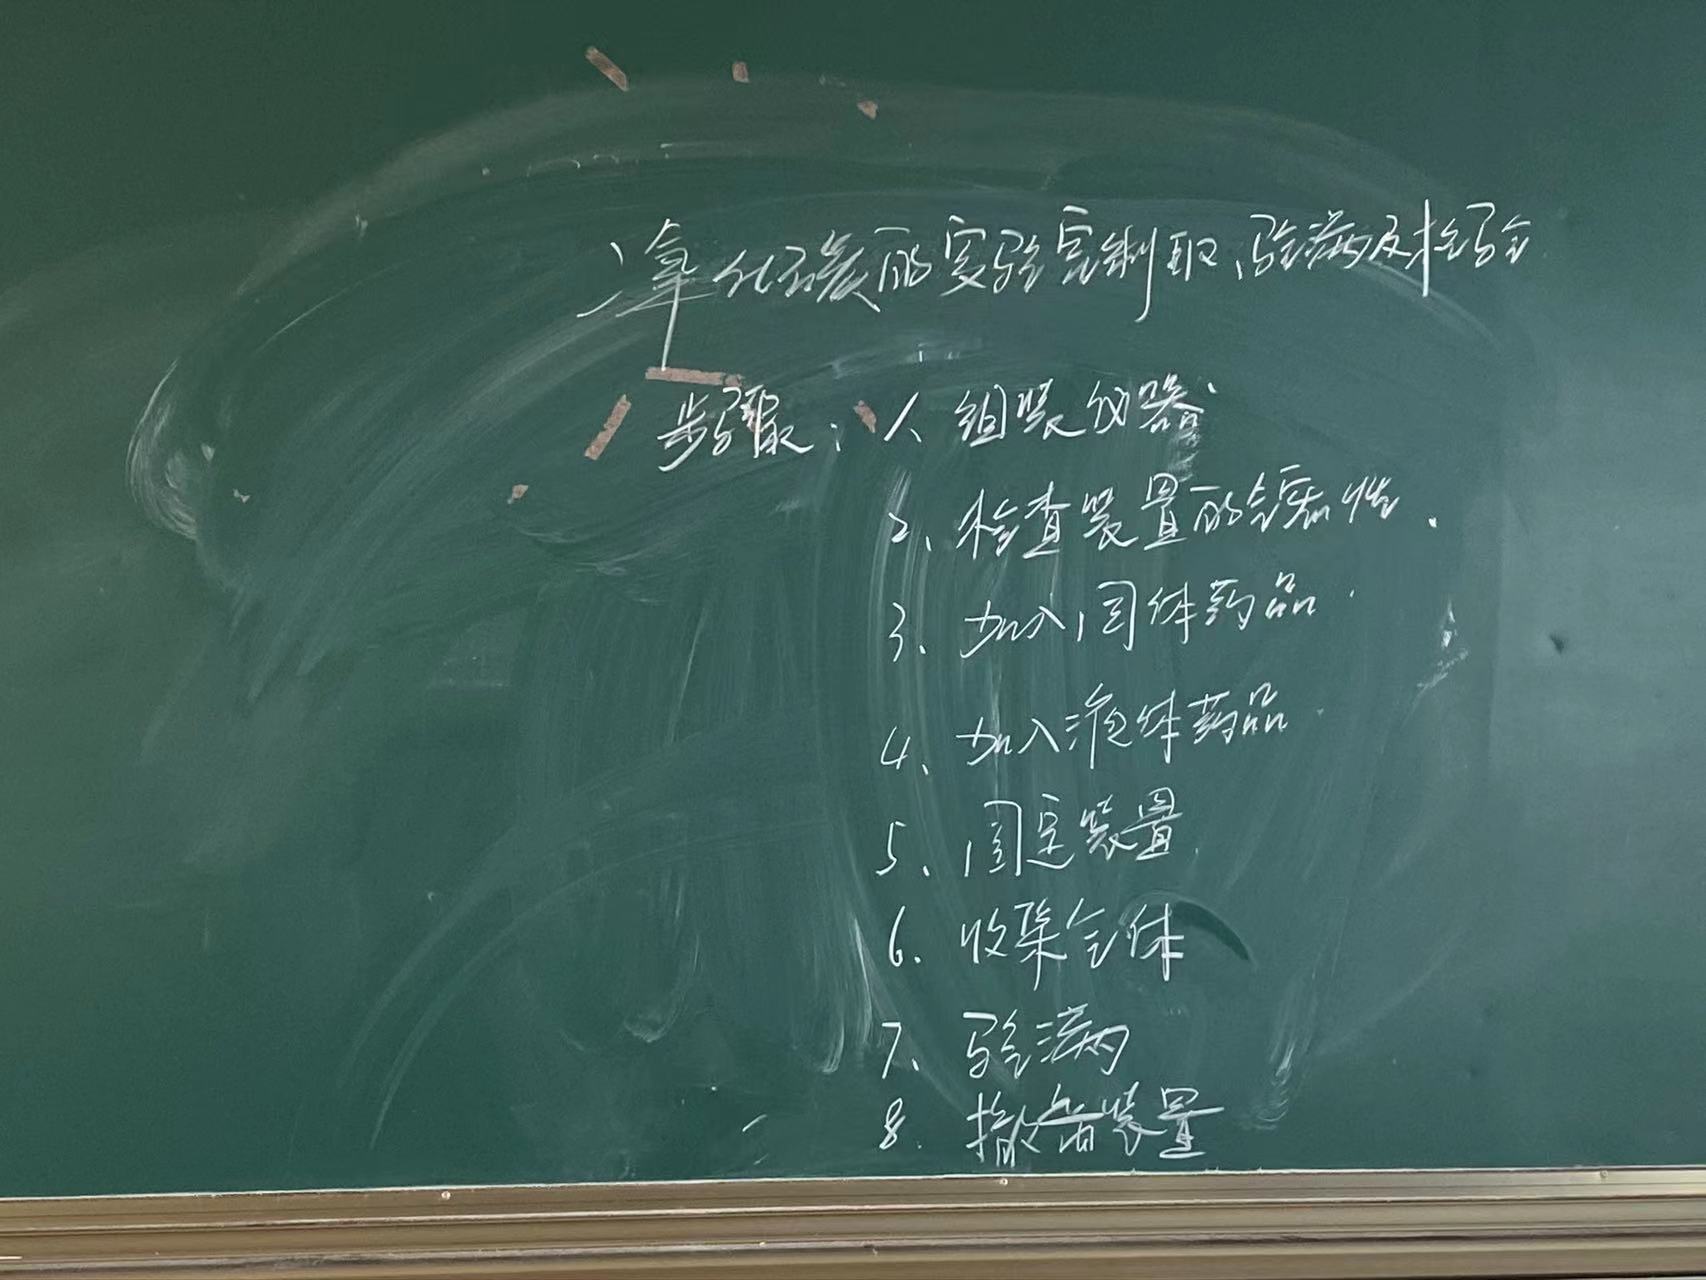 二氧化碳的实验室制取、验满及检验
步骤：1、组装仪器.
2、检查装置的气密性.
3、加入固体药品.
4、加入液体药品.
5、固定装置.
6、收集气体
7、验满
8、撤装置